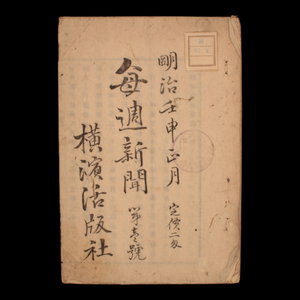 明治壬申正月
定價二匁
每週新聞
第壹號
橫濱活版社